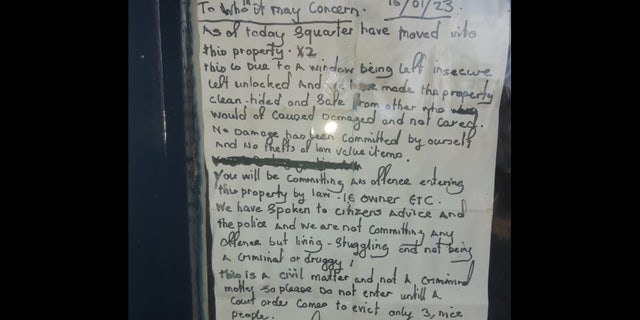 To Who it may Concern. 16/01/23.
As of today Squarter have moved into
this property. x2
this is Due to A window being left insecure
left unlocked And we have made the property
clean-tided and Safe from other who
would of Caused Damaged and not Cared.
No Damage has been Committed by ourself
And No thefts of low value items.
You will be Committing An offence entering
this property by law. IE owner ETC.
We have Spoken to Citizens Advice And
the police And we are not Committing Any
offence but living - Struggling and not being
A Criminal or druggy!
this is A civil matter and not A Criminal
matter so please Do not enter untill A
Court order Comes to evict only 3, nice
people.